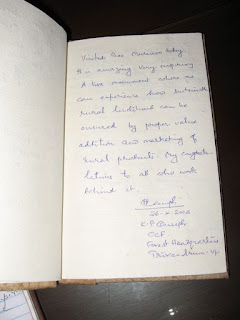 Visited Bee Museum today
It is amazing very inspiring
A live monument where we
can experience how
rural livelihood can be
ensured by proper value
addition and marketing of
rural products. My congratu
lations to all who work
behind it.
K.P
CCF
Forest Headquarters
Trivandrum-14